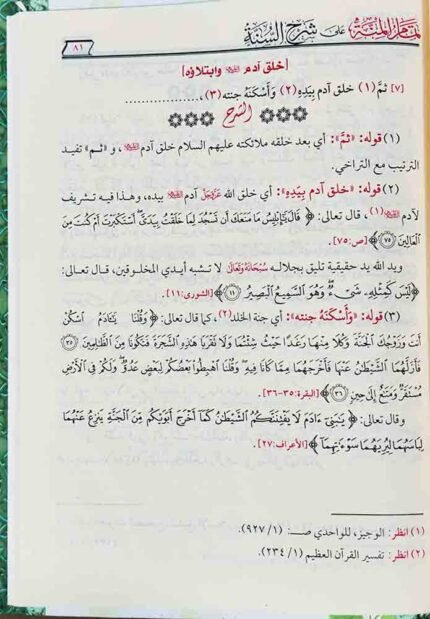 تمام المنة على شرح السنة
٨١
[خلق آدم عليه السلام وابتلاؤه]
[٧] ثمَّ(١) خلق آدم بِيَدِهِ(٢) وَأَسْكَنَهُ جنته(٣)،
الشرح
(١) قوله: «ثمَّ»: أي بعد خلقه ملائكته عليهم السلام خلق آدم عليه السلام، و «ثم» تفيد
الترتيب مع التراخي.
(٢) قوله: «خلق آدم بِيَدِهِ»: أي خلق الله عَزَّوَجَلَّ آدم عليه السلام بيده، وهذا فيه تشريف
لآدم عليه السلام(١)، قال تعالى: ﴿ قَالَ يَٰٓإِبۡلِيسُ مَا مَنَعَكَ أَن تَسۡجُدَ لِمَا خَلَقۡتُ بِيَدَيَّۖ أَسۡتَكۡبَرۡتَ أَمۡ كُنتَ مِنَ
ٱلۡعَالِينَ ٧٥﴾ [ص:٧٥].
ويد الله يد حقيقية تليق بجلاله سُبْحَانَهُ وَتَعَالَى لا تشبه أيدي المخلوقين، قال تعالى:
﴿لَيۡسَ كَمِثۡلِهِۦ شَيۡءٞۖ وَهُوَ ٱلسَّمِيعُ ٱلۡبَصِيرُ ١١﴾ [الشورى:١١].
(٣) قوله: «وَأَسْكَنَهُ جنته»: أي جنة الخلد(٢)، كما قال تعالى: ﴿ وَقُلۡنَا يَٰٓـَٔادَمُ ٱسۡكُنۡ
أَنتَ وَزَوۡجُكَ ٱلۡجَنَّةَ وَكُلَا مِنۡهَا رَغَدًا حَيۡثُ شِئۡتُمَا وَلَا تَقۡرَبَا هَٰذِهِ ٱلشَّجَرَةَ فَتَكُونَا مِنَ ٱلظَّٰلِمِينَ ٣٥
فَأَزَلَّهُمَا ٱلشَّيۡطَٰنُ عَنۡهَا فَأَخۡرَجَهُمَا مِمَّا كَانَا فِيهِۖ وَقُلۡنَا ٱهۡبِطُواْ بَعۡضُكُمۡ لِبَعۡضٍ عَدُوّٞۖ وَلَكُمۡ فِي ٱلۡأَرۡضِ
مُسۡتَقَرّٞ وَمَتَٰعٌ إِلَىٰ حِينٖ ٣٦﴾ [البقرة:٣٥-٣٦].
وقال تعالى: ﴿ يَٰبَنِيٓ ءَادَمَ لَا يَفۡتِنَنَّكُمُ ٱلشَّيۡطَٰنُ كَمَآ أَخۡرَجَ أَبَوَيۡكُم مِّنَ ٱلۡجَنَّةِ يَنزِعُ عَنۡهُمَا
لِبَاسَهُمَا لِيُرِيَهُمَا سَوۡءَٰتِهِمَآ﴾ [الأعراف:٢٧].
(١) انظر: الوجيز، للواحدي صـ: (١/ ٩٢٧).
(٢) انظر: تفسير القرآن العظيم (١/ ٢٣٤).